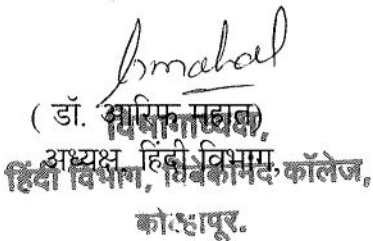 ( डॉ. आरिफ महात)
विभागाध्यक्ष,
अध्यक्ष, हिंदी विभाग,
हिंदी विभाग, विवेकानंद कॉलेज,
कोल्हापूर.